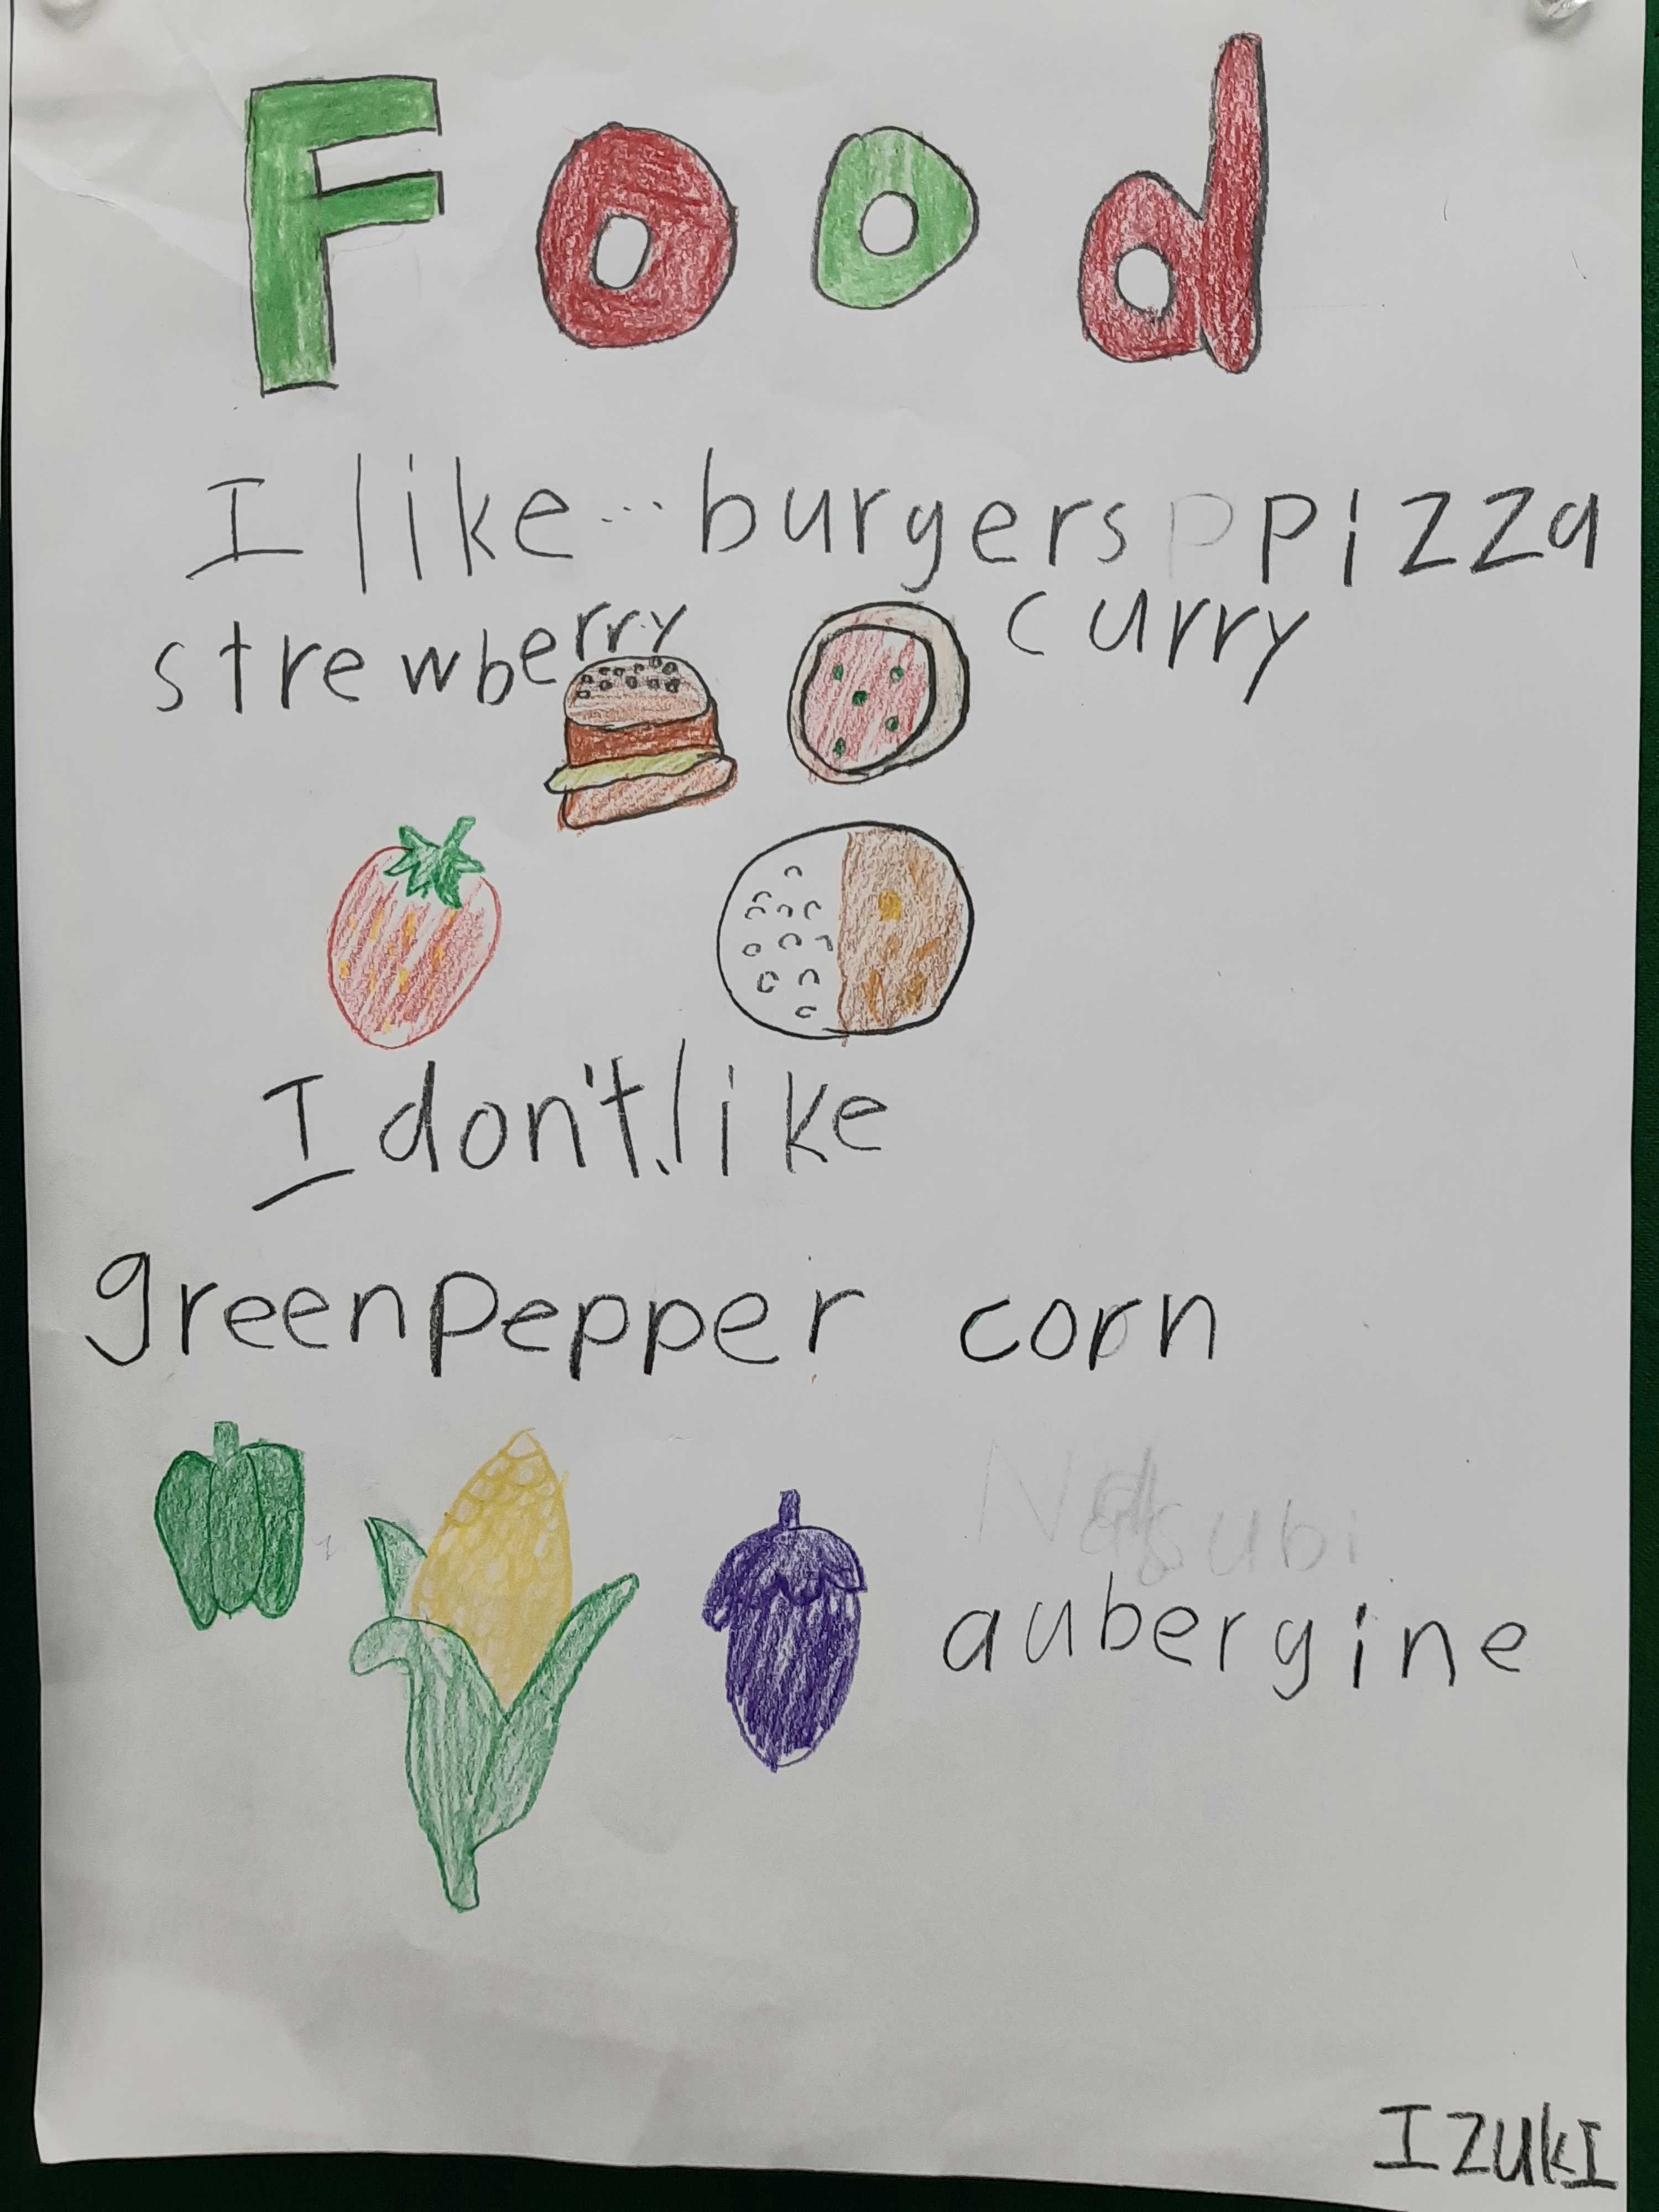 Food
I like... burgers pizza
strewberry curry
I don't like
greenpepper corn
Natsubi
aubergine
IZUKI